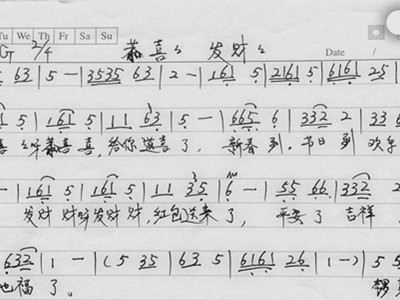 Tu We Th Fr Sa Su
G 2/4 恭喜々 发财々 Date /
5 63 | 5 – | 3535 63 | 2 – | 161 5 | 2161 5 | 6161 25 |
5 | 161 5 | 11 63 | 5 – | 665 6 | 332 2 | 33
喜々呀恭喜喜,给你道喜了,新春到,节日到 欢乐
– | 161 5 | 161 5 | 11 35 | 6 – | 55 66 | 332 2
发财财呀发财财,红包送来了,平安了 吉祥
632 | 1 – | (5 35 | 63 5 | 6161 26 | 1 –) | 5
福了。